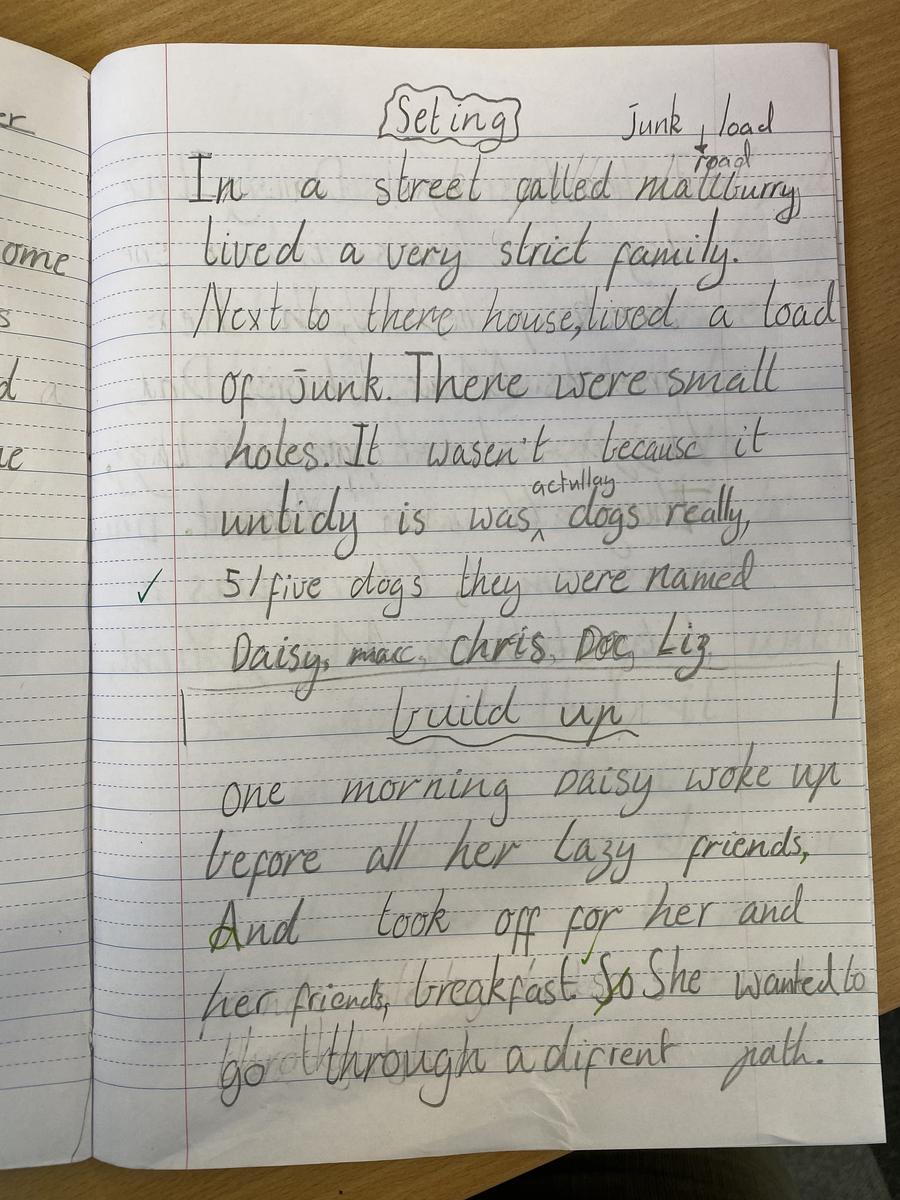 er
ome
s
d
ue
Seting
junk, load
road
In a street called mallburry
lived a very strict family.
Next to there house, lived a load
of junk. There were small
holes. It wasen't because it
actullay
untidy is was ^ dogs really,
✓ 5/five dogs they were named
Daisy, mac, Chris, Doc, Liz
build up
One morning Daisy woke up
before all her lazy friends,
And took off for her and
her friends, breakfast. So She wanted to
go through a difrent path.